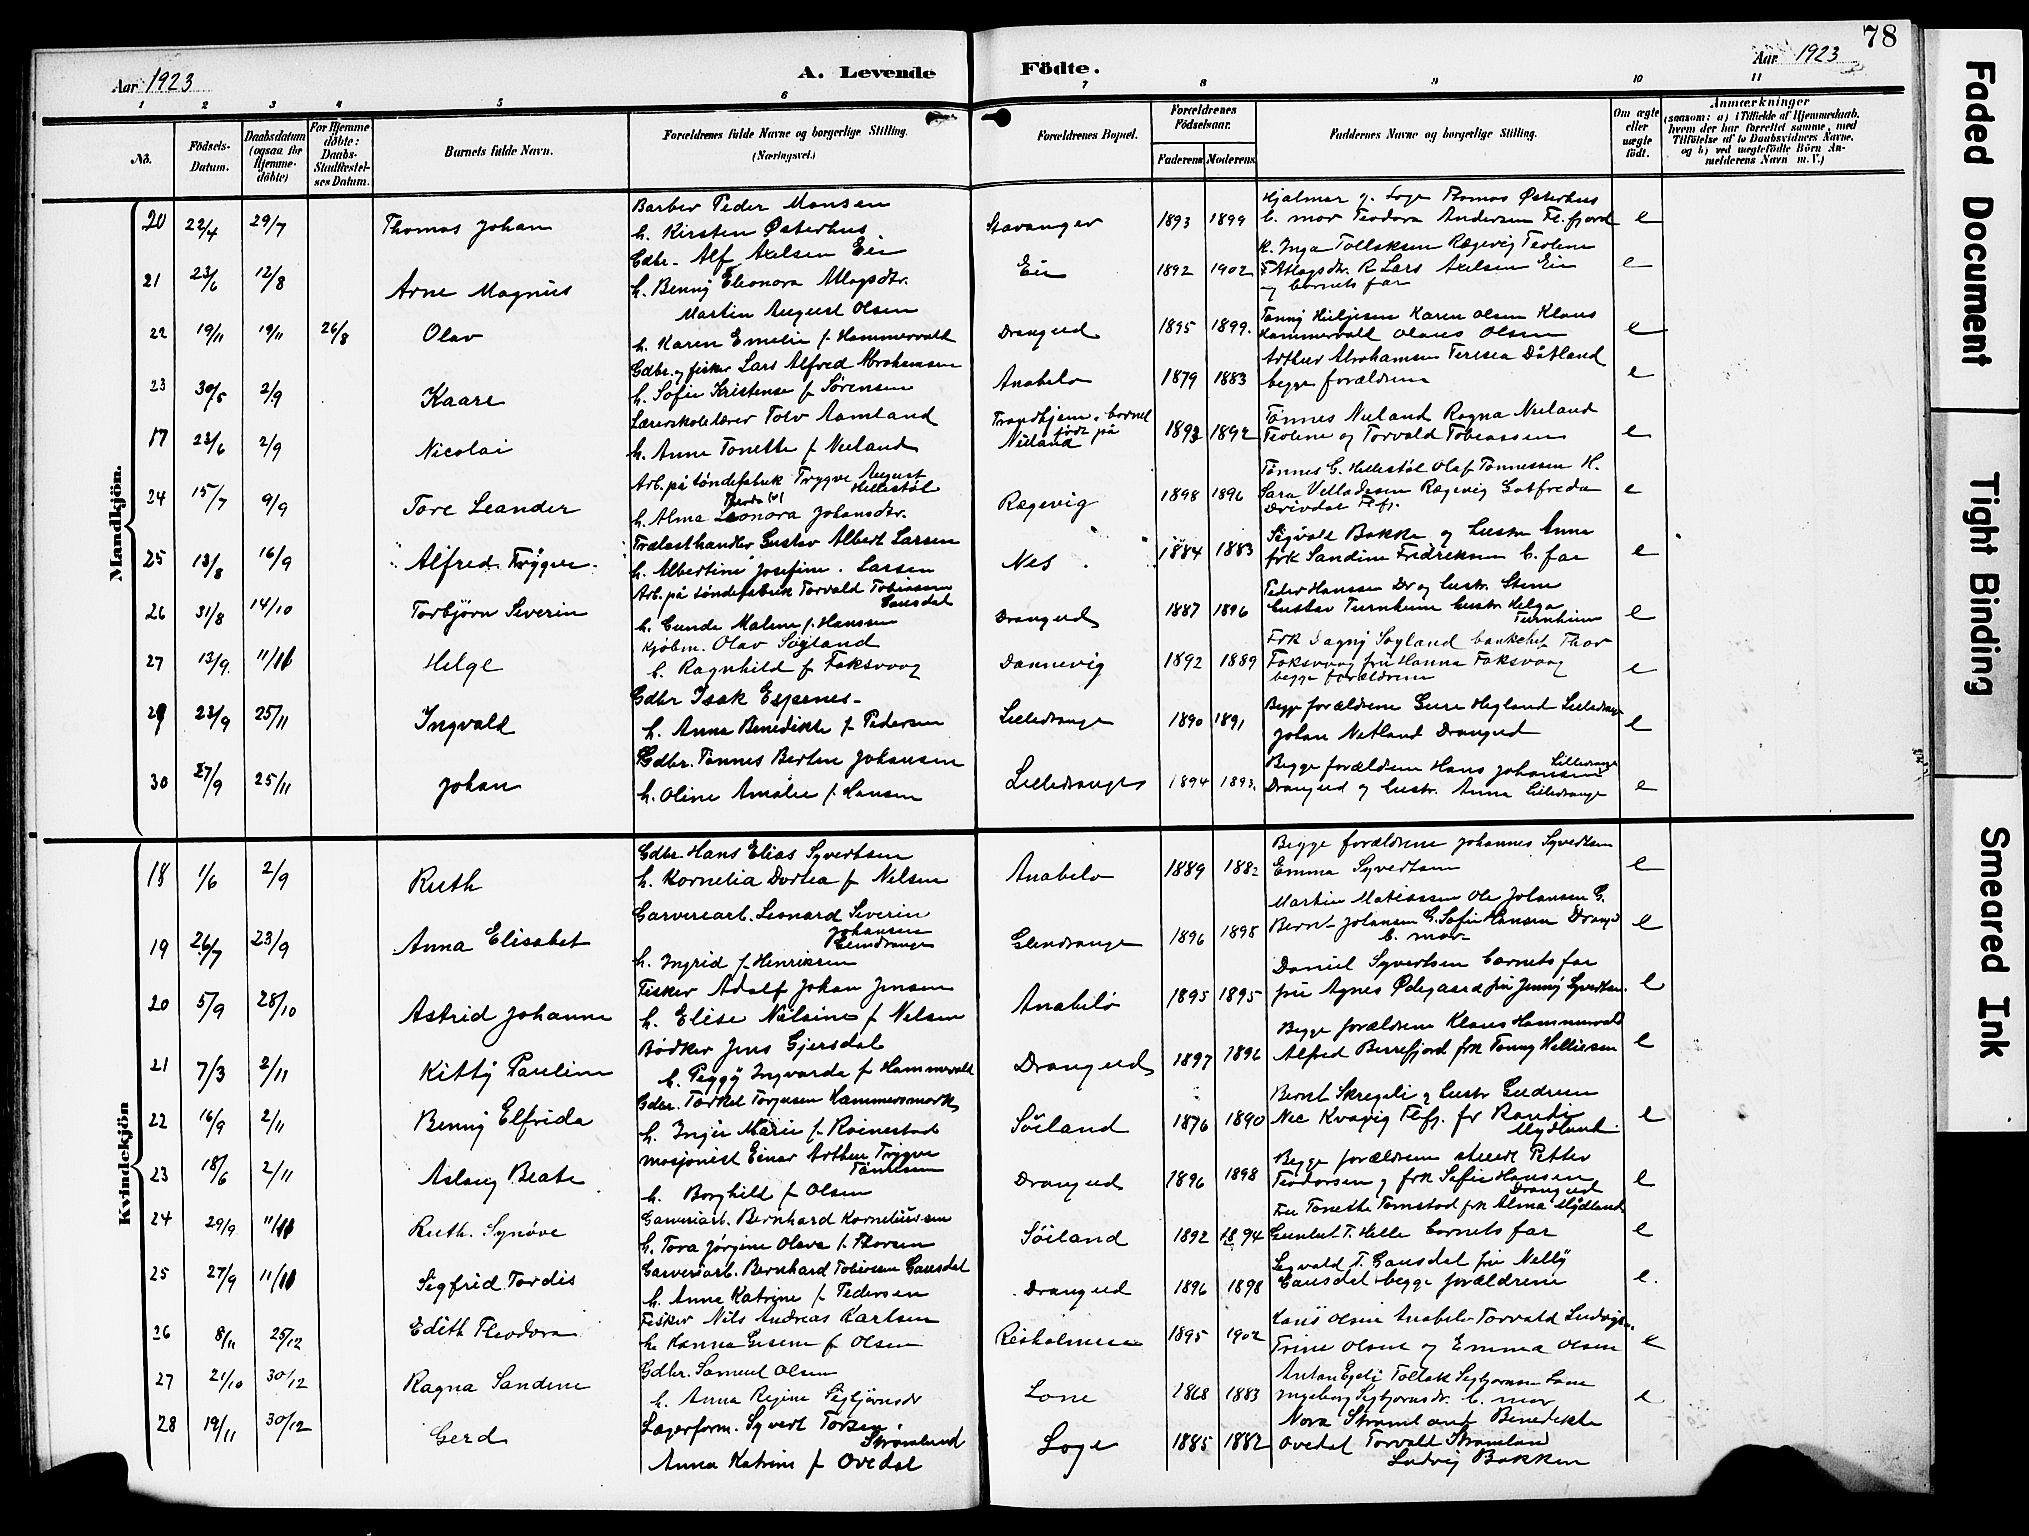 78
Aar 1923
A. Levende Födte.
Aar 1923
1 2 3 4 5 6 7 8 9 10 11
No.
Födsels-Datum.
Daabsdatum (ogsaa for Hjemmedöbte)
For Hjemmedöbte: Daabs-Stadfæstelses Datum.
Barnets fulde Navn.
Forældrenes fulde Navne og borgerlige Stilling.
(Næringsvei.)
Forældrenes Bopæl.
Forældrenes Födselsaar.
Faderens Moderens
Faddernes Navne og borgerlige Stilling.
Om ægte eller uægte födt.
Anmærkninger
(saasom: a) i Tilfælde af Hjemmedaab, hvem der har forrettet samme, med Tilföielse af to Daabsvidners Navne, og b) ved uægtefödte Börn Anmelderens Navn m. V.)
Mandkjön.
20 22/4 29/7 Thomas Johan Barber Peder Monsen
h. Kirsten Østerhus Stavanger 1893 1899 Hjalmar og Loge Thomas Østerhus
b. mor Teodora Andersen Fl.fjord e
21 23/6 12/8 Arne Magnus Gdbr. Alf Axelsen Eie
h. Benny Eleonora Atlagsdtr. Eie 1892 1902 K. Inga Tollaksen Rægevig Teoline
Atlagsdtr. R Lars Axelsen Eie
og barnets far e
22 19/11 19/11 26/8 Olav Martin August Olsen
h. Karen Emelie f. Hammervold Drangeid 1895 1899. Karen Olsen Klaus
Hammervold Olaus Olsen e
23 30/5 2/9 Kaare Gdbr. og fisker Lars Alfred Abrahamsen
h. Sofie Kristense f Sørensen Anabelø 1879 1883 Arthur Abrahamsen Teresia Dåtland
begge forældrene e
17 23/6 2/9 Nicolai Lærerskolelærer Tolv Aamland
h. Anna Tonette f Neeland Trondhjem, barnet
født på
Neeland 1892 1892 Tønnes Neeland Ragna Neeland
Teoline og Torvald Tobiassen e
24 15/7 9/9 Tore Leander Arb. på tøndefabrik Trygve August
Hellestøl
h. Alma Leonora Johansdtr. Rægevig 1898 1896 Tønnes G. Hellestøl Olaf Tønnessen H.
Sara Velladsen Rægevig Gotfreda
Drivdal Flfj. e
25 13/8 16/9 Alfred Trygve Trælasthandler Gustav Albert Larsen
h. Albertine Josefine Larsen Nes 1884 1883 Sigvald Bakke og hustr Anna
frk Sandine Fredriksen b. far e
26 31/8 14/10 Torbjørn Severin Arb. på tøndefabrik Torvald Tobiassen
Gausdal
h. Gunda Malene f. Hanssen Drangeid 1887 1896 Peder Hanssen Dr og hustr. Stine
Gustav Turnheim hustr. Helga
Turnheim e
27 13/9. 11/11 Helge Kjøbm. Olav Søyland
h. Ragnhild f Foksvaag Dannevig 1892 1889 Frk Dagny Søyland bankchef Thor
Foksvaag fru Hanna Foksvaag
begge forældrene e
29 23/9 25/11 Ingvald Gdbr Isak Espenes
h. Anna Benedikte f Pedersen Lilledrange 1890 1891 Begge forældrene Hegland Lilledrange
Johan Netland Drangeid e
30 27/9 25/11 Johan Gdbr. Tønnes Bertin Johansen
h. Oline Amalie f. Hansen Lilledrange 1894 1893. Begge forældrene Hans Johansen Lilledrange
Drangeid og hustr. Anna Lilledrange e
Kvindekjön
18 1/6 2/9 Ruth Gdbr. Hans Elias Syvertsen
h. Kornelia Dortea f Nelsen Anabelø 1889 1882 Begge forældrene Johannes Syvertsen
Emma Syvertsen e
19 26/7 23/9 Anna Elisabet Garveriarb. Leonard Severin
Johansen
Glendrange
h. Ingrid f Henriksen Glendrange 1896 1898 Martin Matiassen Ole Johansen G.
Bernt Johansen G. Sofie Hansen Drange
b. mor e
20 5/9 28/10 Astrid Johanne Fisker Adolf Johan Jensen
h. Elise Nelsine f Nelsen Anabelø 1895 1895 Daniel Syvertsen barnets far
fru Agnes Ødegaard fru Jenny Syvertsen. e
21 7/3 2/11 Kitty Pauline Bødker Jens Gjersdal
h. Peggy Ingvarda f Hammervold Drangeid 1897 1896 Begge forældrene Klaus Hammervold
Alfred Berrefjord frk Tonny Helliesen e
22 16/9 2/11 Benny Elfrida Gdbr. Torkel Torjusen Hammersmark
h. Inger Marie f. Roinestad Søiland 1876 1890 Bernt Skregeli og hustr Gudrun
Nee Kvavig Flfj. fr Randi
Mydland e
23 18/6 2/11 Aslaug Beate Maskinist Einar Arthur Trygve
Tønnesen
h. Borghild f Olsen Drangeid 1896 1898 Begge forældrene Petter
Teodorsen og frk Sofie Hansen
Drangeid e
24 29/9 11/11 Ruth Synøve Garveriarb. Bernhard Korneliussen
h. Tora Jørgine Olava f. Thorsen Søiland 1892 1894 Fru Tonette Tomstad frk Alma Mydland
Gunleet T. Helle barnets far e
25 27/9 11/11 Sigfrid Tordis Garveriarb. Bernhard Tobiassen Gausdal
h. Anna Katrine f Pedersen Drangeid 1896 1898 Segvald T. Gausdal fru Nelly
Gausdal begge forældrene e.
26 8/11 25/12 Edith Theodora Fisker Nils Andreas Karlsen
h. Hanna f Olsen Reisholmen 1895 1902 Hans Olsen Anabelø Torvald Ludvigs.
Trine Olsen og Emma Olsen e
27 21/10 30/12 Ragna Sandene Gdbr. Samuel Olsen
h. Anna Regine Segbjørnsdr Lone 1868 1883 Tollak Segbjornsen Lone
Ingeborg Segbjornsdr. b. mor e
28 19/11 30/12 Gerd Lagerform. Syvert Torsen
Strømland
Anna Katrine f Ovedal Loge 1885 1882 Nora Strømland Benedikte
Ovedal Torvald Strømland
Ludvig Bakken e
Faded Document
Tight Binding
Smeared Ink